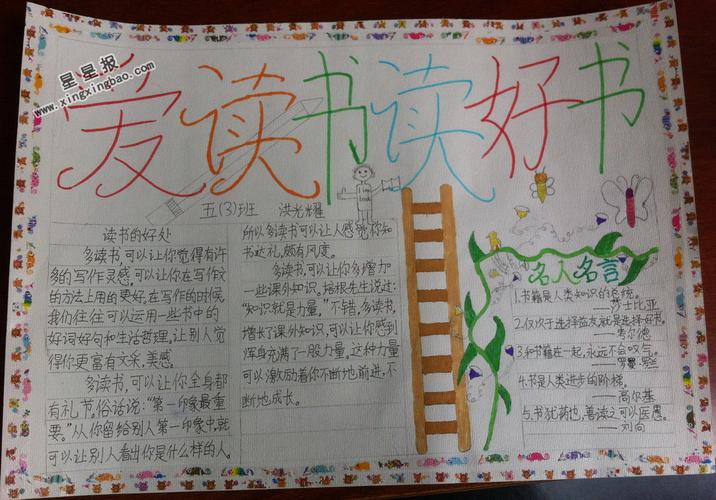 星星报
www.xingxingbao.com
爱读书读好书
五(3)班 洪光耀
读书的好处
多读书,可以让你觉得有许
多的写作灵感,可以让你在写作文
的方法上用的更好,在写作的时候,
我们往往可以运用一些书中的
好词好句和生活哲理,让别人觉
得你更富有文采,美感。
多读书,可以让你全身都
有礼节,俗话说:“第一印象最重
要。”从你留给别人第一印象中,就
可以让别人看出你是什么样的人。
所以多读书可以让人感觉你知
书达礼,颇有风度。
多读书,可以让你多增加
一些课外知识,培根先生说过:
“知识就是力量。”不错,多读书,
增长了课外知识,可以让你感到
浑身充满了一股力量,这种力量
可以激励着你不断地前进,不
断地成长。
名人名言
1.书籍是人类知识的总统。
——莎士比亚
2.仅次于选择益友,就是选择好书。
——考尔德
3.和书籍在一起,永远不会叹气。
——罗曼·罗兰
4.书是人类进步的阶梯。
——高尔基
5.书犹药也,善读之可以医愚。
——刘向